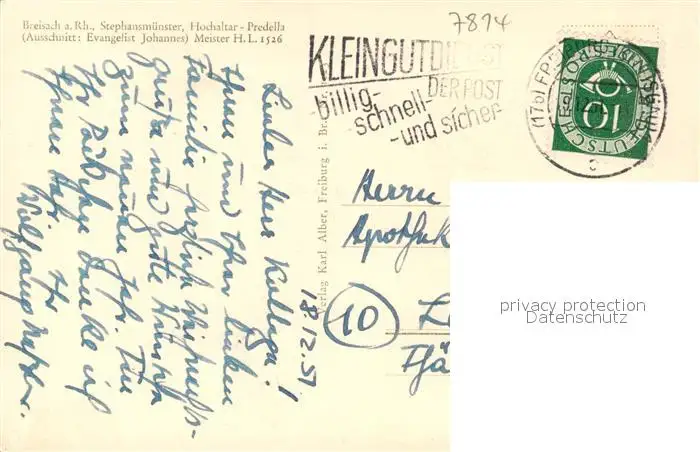 Breisach a. Rh., Stephansmünster, Hochaltar - Predella
(Ausschnitt: Evangelist Johannes) Meister H. L. 1526
7894
KLEINGUTDIENST
DER POST
-billig-
-schnell-
-und sicher
(17b) FREIBURG
DEUTSCHE BUNDESPOST
10
Verlag Karl Alber, Freiburg i. Br.
18.12.51
Lieber Herr Kollege!
Ihnen und Ihrer lieben
Familie herzlich Weihnachts-
grüße und gute Wünsche
zum neuen Jahr. Für
Ihr danke ich
Ihnen sehr.
Ihr
Wolfgang
Herrn
Apothek
10
privacy protection
Datenschutz